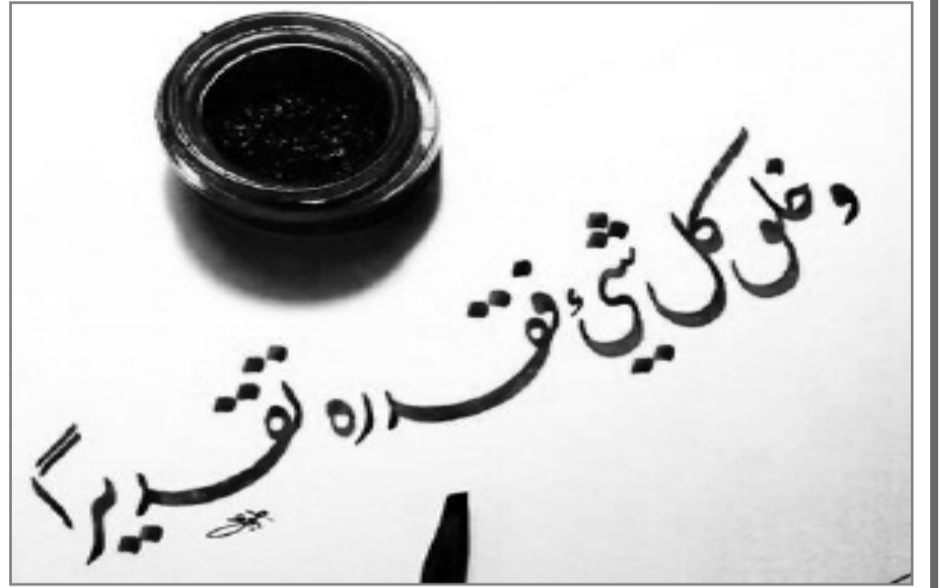 وخلق كل شيء فقدره تقديراً